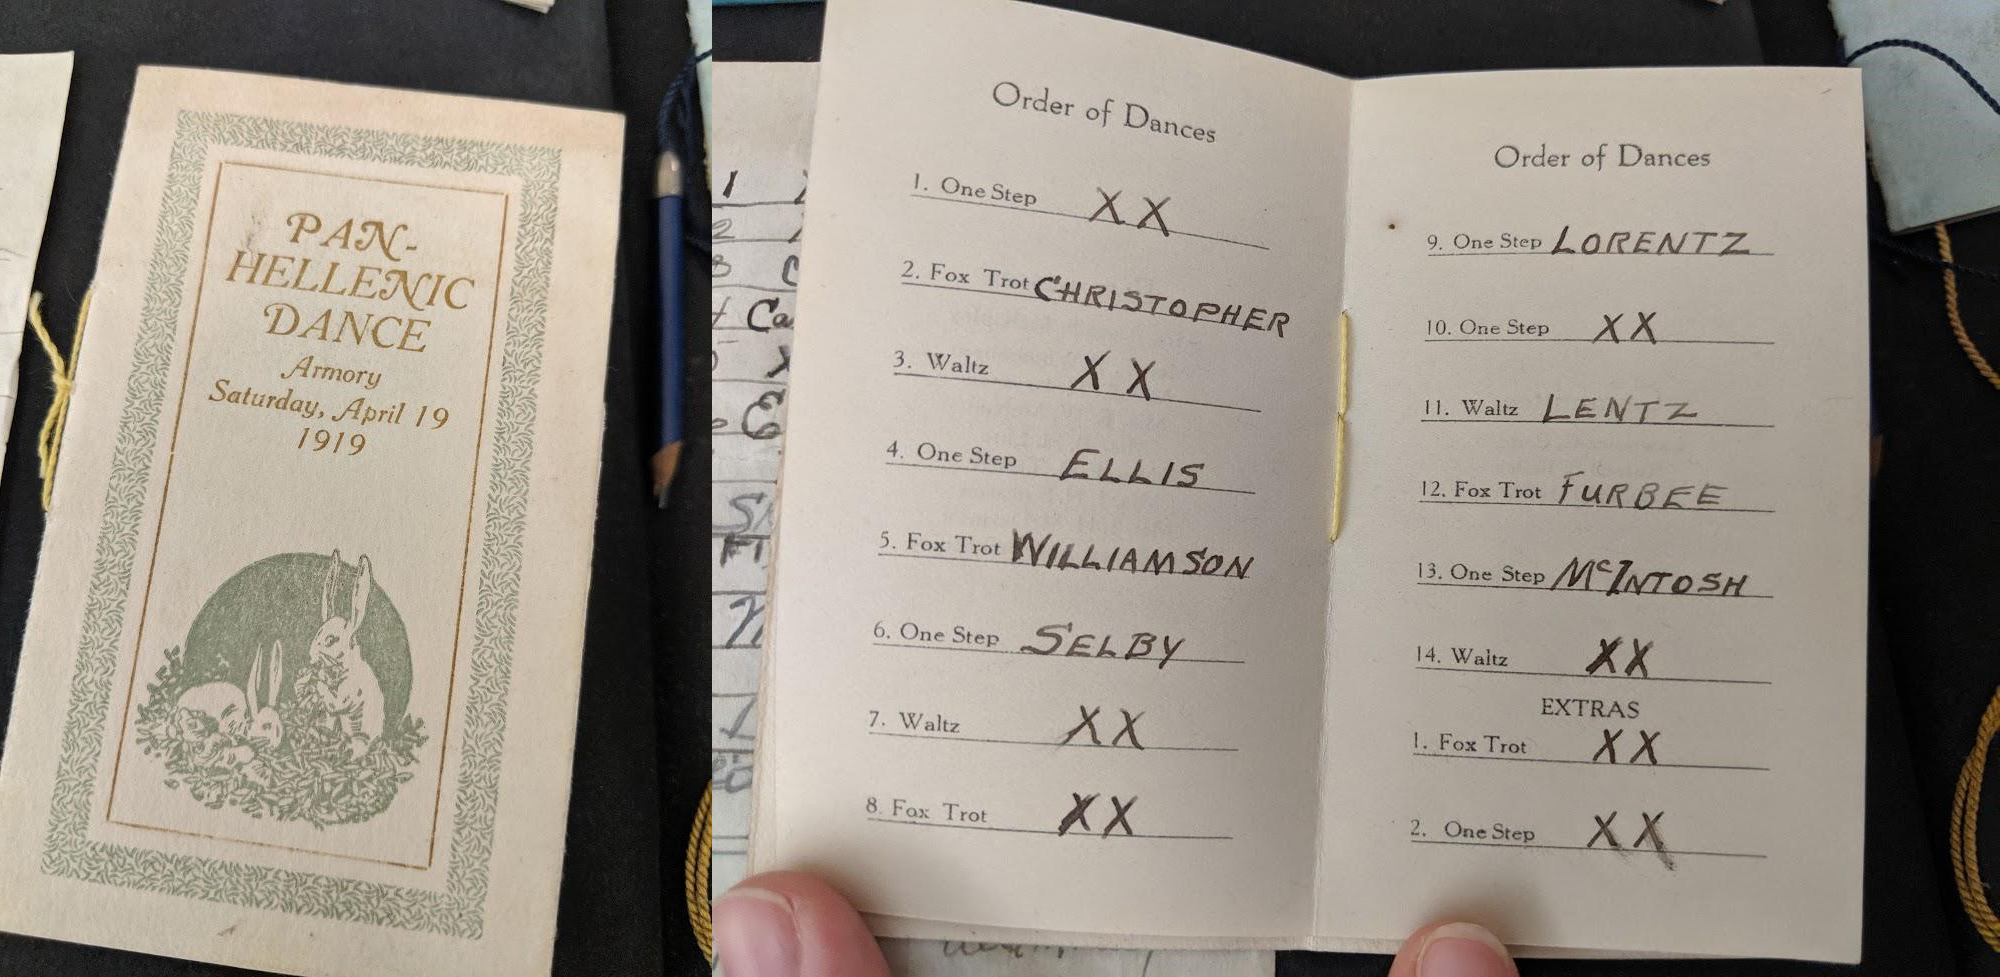 PAN-
HELLENIC
DANCE
Armory
Saturday, April 19
1919
1
2
3 C
Ca
Order of Dances
1. One Step XX
2. Fox Trot CHRISTOPHER
3. Waltz XX
4. One Step ELLIS
5. Fox Trot WILLIAMSON
6. One Step SELBY
7. Waltz XX
8. Fox Trot XX
Order of Dances
9. One Step LORENTZ
10. One Step XX
11. Waltz LENTZ
12. Fox Trot FURBEE
13. One Step McINTOSH
14. Waltz XX
EXTRAS
1. Fox Trot XX
2. One Step XX